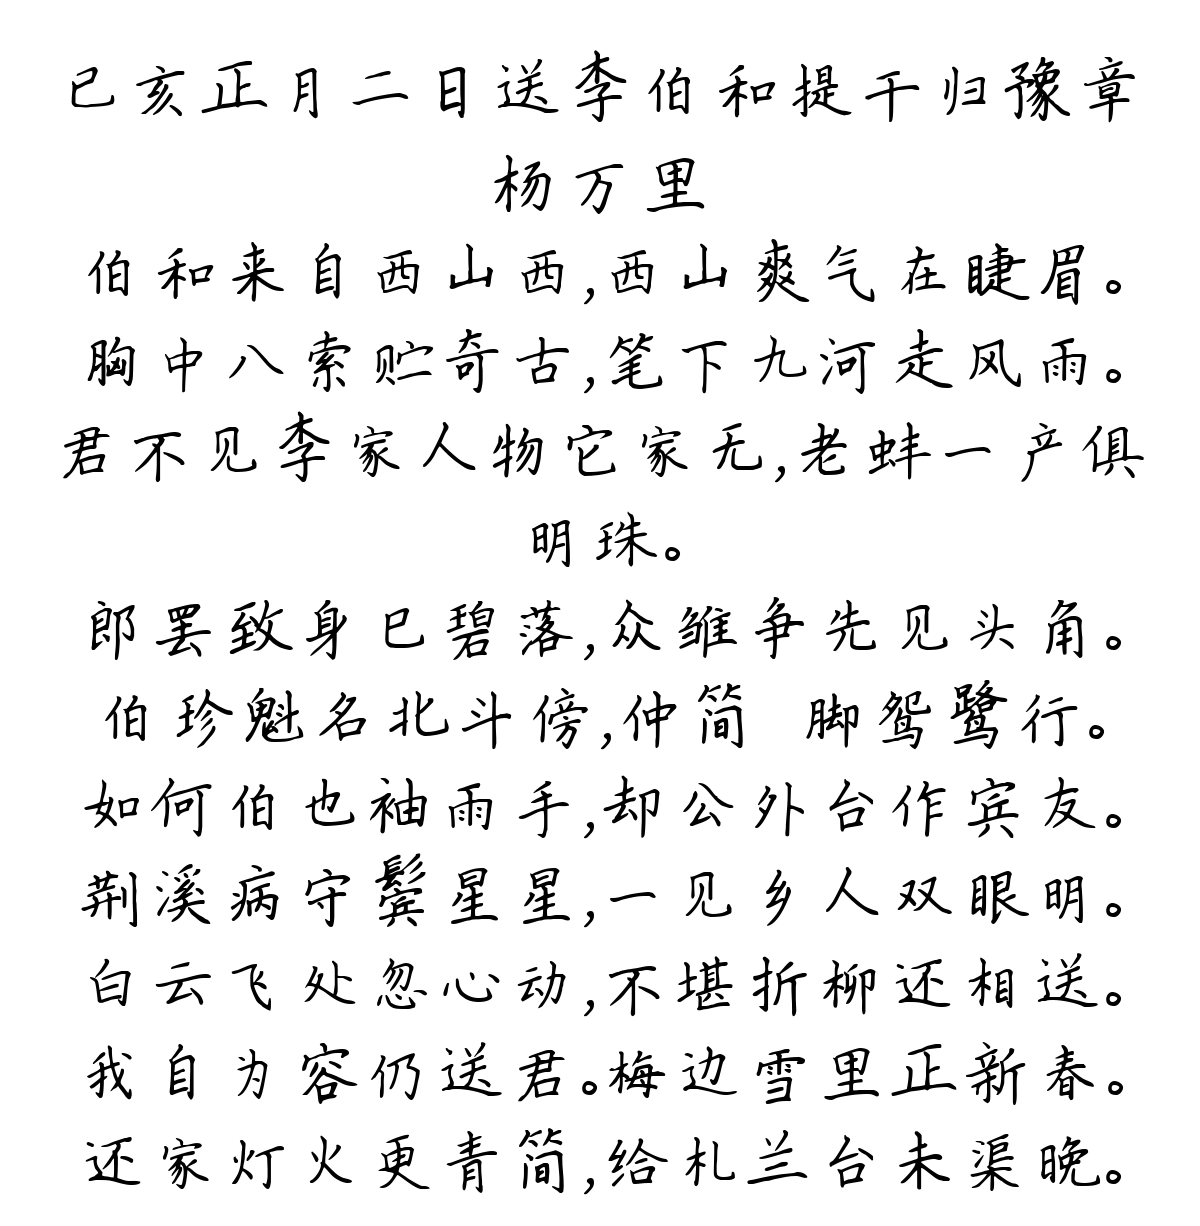 已亥正月二日送李伯和提干归豫章
杨万里
伯和来自西山西,西山爽气在睫眉。
胸中八索贮奇古,笔下九河走风雨。
君不见李家人物它家无,老蚌一产俱
明珠。
郎罢致身已碧落,众雏争先见头角。
伯珍魁名北斗傍,仲简 脚鸳鹭行。
如何伯也袖雨手,却公外台作宾友。
荆溪病守鬓星星,一见乡人双眼明。
白云飞处忽心动,不堪折柳还相送。
我自为容仍送君。梅边雪里正新春。
还家灯火更青简,给札兰台未渠晚。